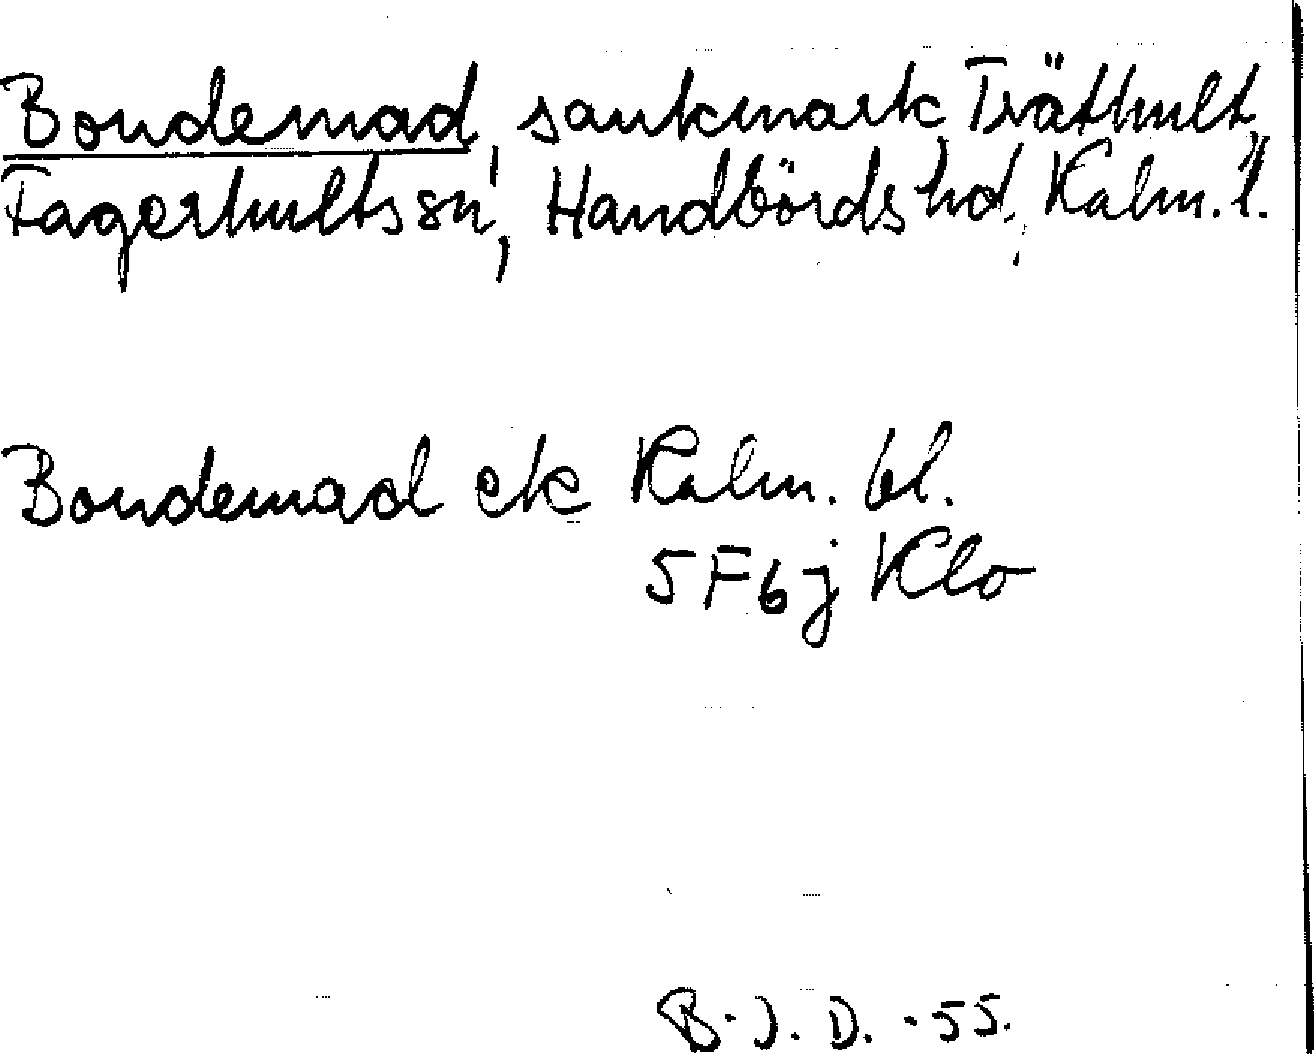 Bondemad, sankmark, Träthult,
Fagerhults sn, Handbörds hd, Kalm. l.
Bondemad ek Kalm. bl.
5F6j Klo
B.J.D. -55.